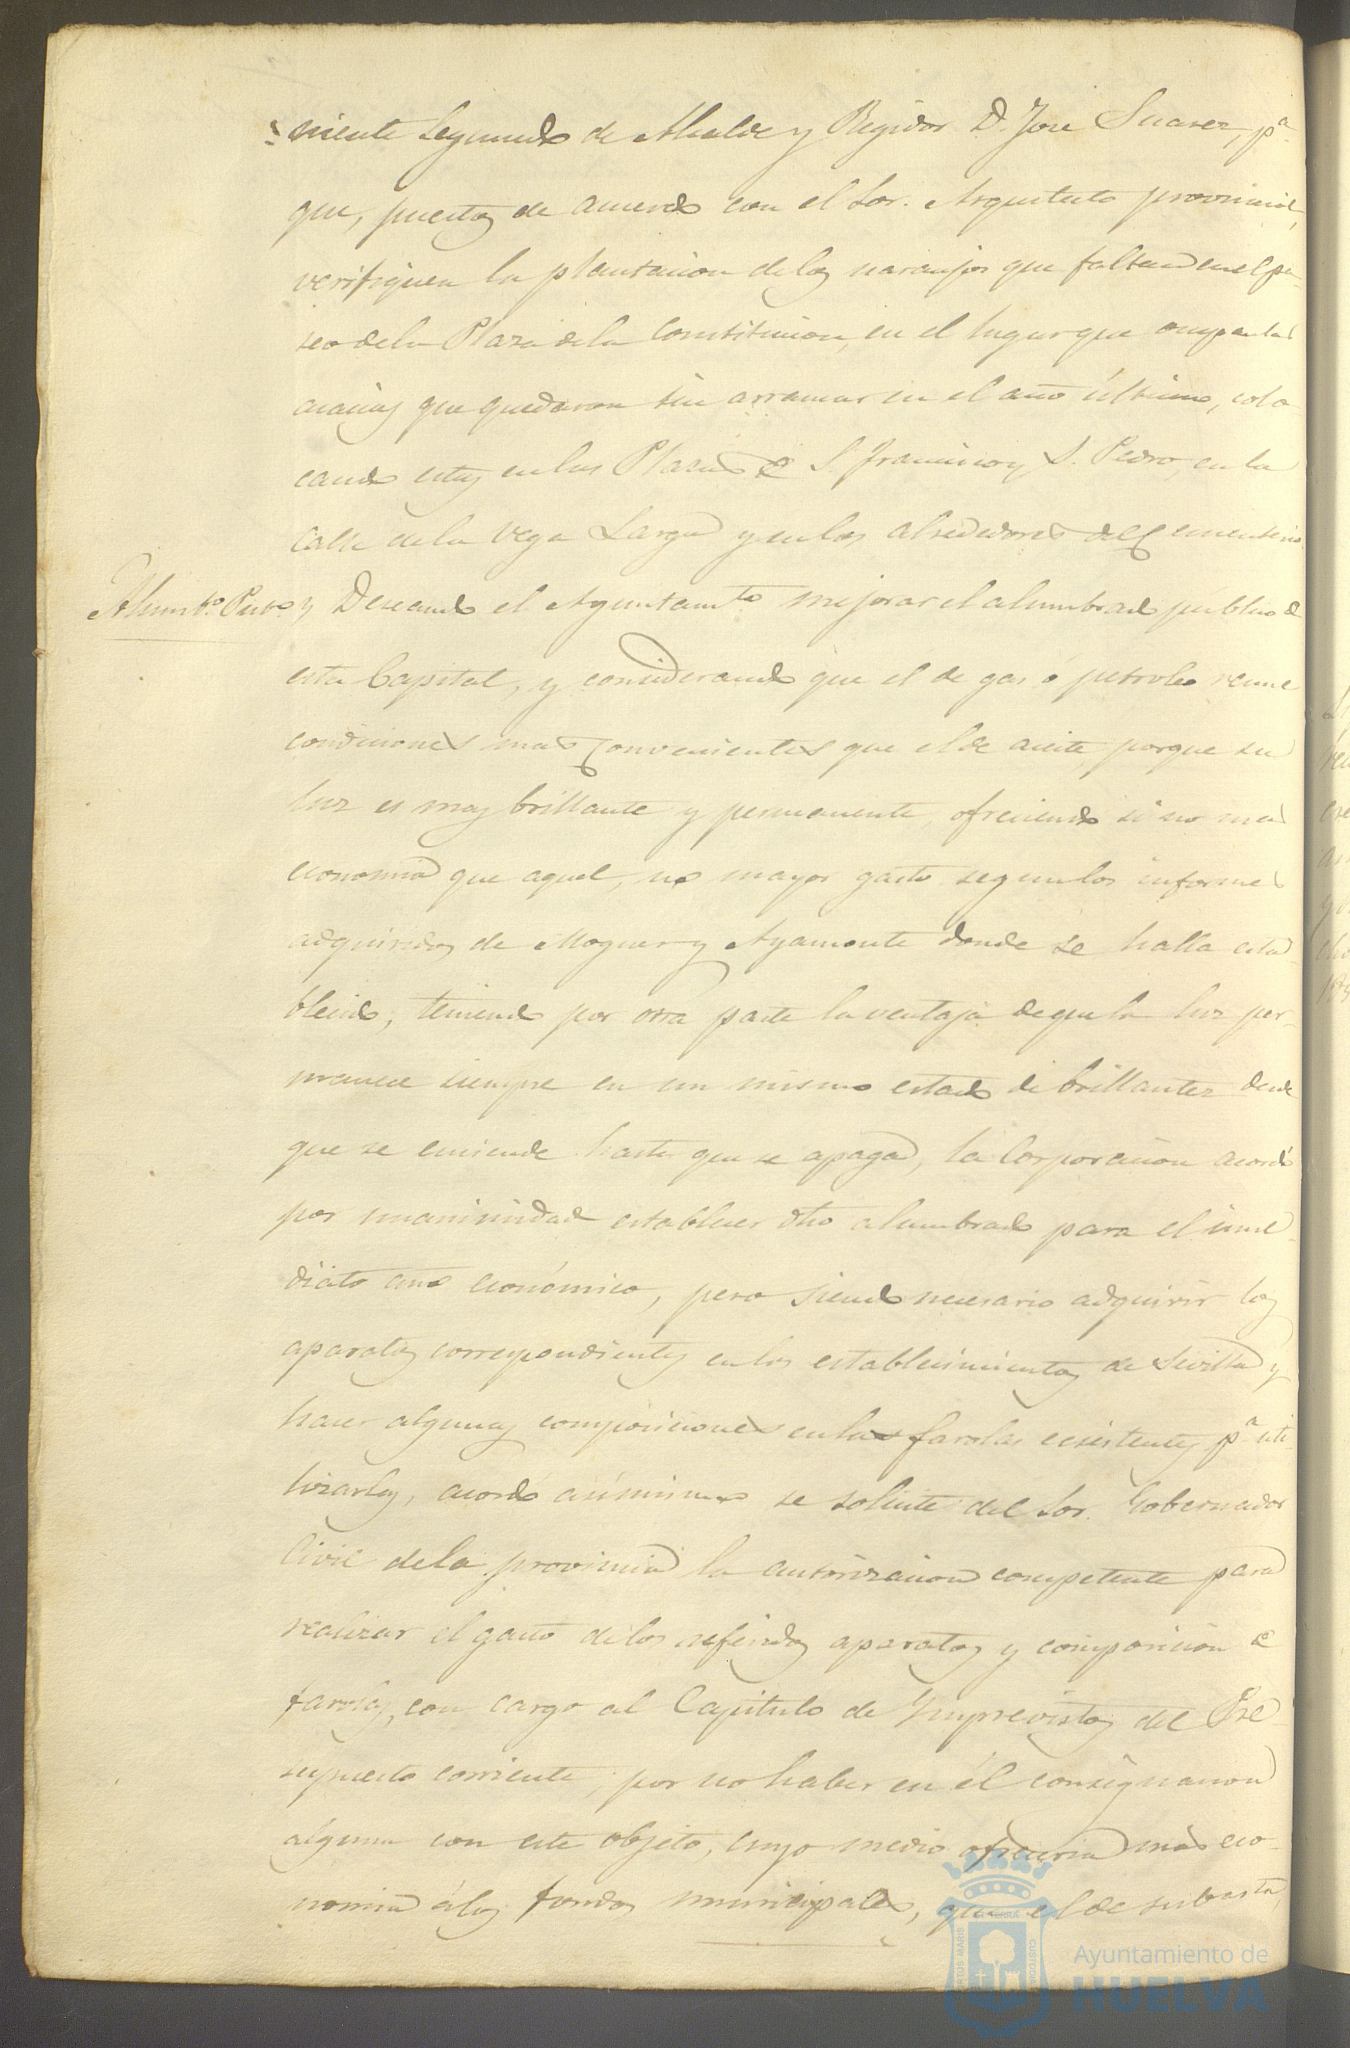 niente Segundo de Alcalde y Regidor D. José Suarez, pª
que, puestos de acuerdo con el Sor. Arquitecto provincial,
verifiquen la plantacion de los naranjos que faltan en el pa-
seo de la Plaza de la Constitucion, en el lugar que ocupan las
acacias que quedaron sin arrancar en el año último, colo-
cando estas en las Plazas de S. Francisco y S. Pedro, en la
Calle de la Vega Larga y en los alrededores del Cementerio.
Alumbº Pubº y Deseando el Ayuntamtº mejorar el alumbrado público de
esta Capital, y considerando que el de gas ó petroleo reune
condiciones mas convenientes que el de aceite, porque su
luz es mas brillante y permanente, ofreciendo si no mas
economia que aquel, no mayor gasto segun los informes
adquiridos de Moguer y Ayamonte donde se halla esta-
blecido, teniendo por otra parte la ventaja de que la luz per-
manece siempre en un mismo estado de brillantez desde
que se enciende hasta que se apaga, la Corporacion acordó
por unanimidad establecer dho alumbrado para el inme-
diato año económico, pero siendo necesario adquirir los
aparatos correspondientes en los establecimientos de Sevilla y
hacer algunas composiciones en las farolas ecsistentes pª uti-
lizarlas, acordó asímismo se solicite del Sor. Gobernador
Civil de la provincia la autorizacion competente para
realizar el gasto de los referidos aparatos y composicion de
farolas, con cargo al Capitulo de Imprevistos del Pre-
supuesto corriente, por no haber en él consignacion
alguna con este objeto, cuyo medio ofreceria más eco-
nomia á los fondos municipales, que el de subasta,
Ayuntamiento de
HUELVA